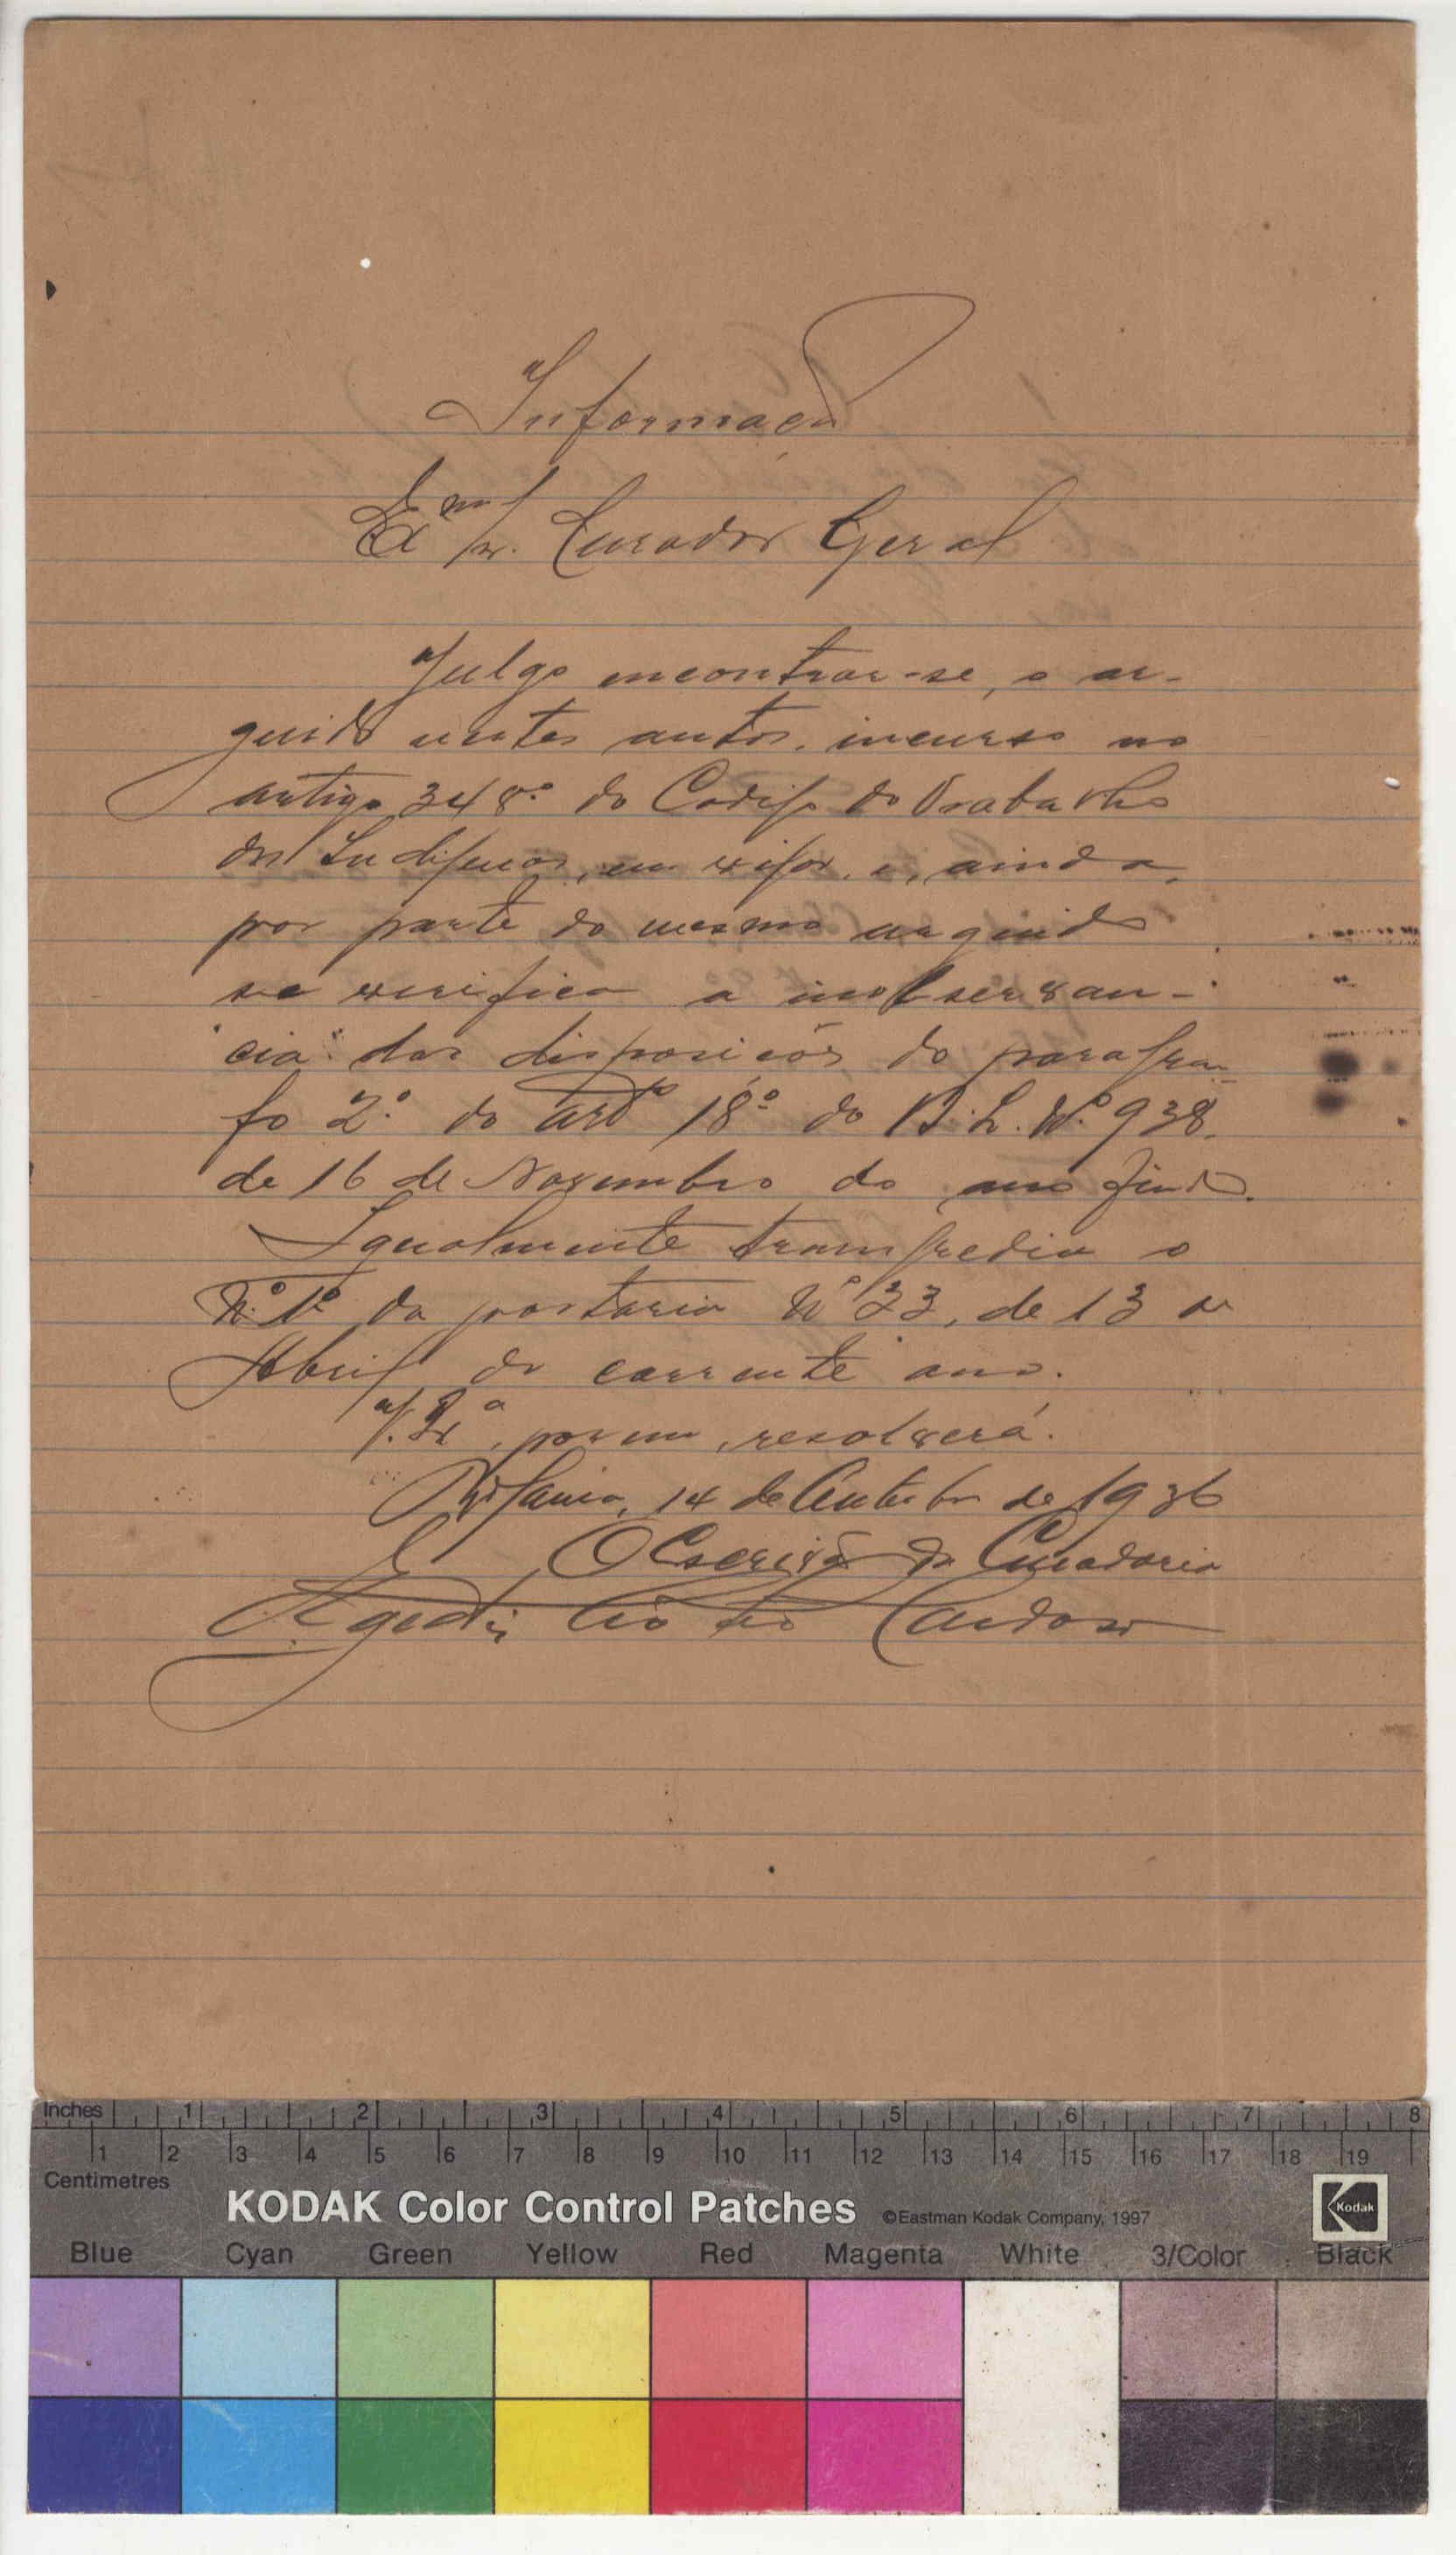 Informação
Exmo Sr. Curador Geral
Julgo encontrar-se, o ar-
guido nestes autos, incurso no
artigo 348.º do Codigo do Trabalho
dos Indigenas, em vigor, e, ainda,
por parte do mesmo arguido
se verifica a inobservan-
cia das disposições do paragra-
fo 2.º do artº 18.º do B. L. Nº. 938,
de 16 de Novembro do ano findo.
Igualmente transgrediu o
N.º 1º da portaria Nº 33, de 13 de
Abril do corrente ano.
V. Exª, porem, resolverá.
14 de Outubro de 1936
O Escrivão da Curadoria
Cardoso
Inches 1 2 3 4 5 6 7 8
1 2 3 4 5 6 7 8 9 10 11 12 13 14 15 16 17 18 19
Centimetres
KODAK Color Control Patches ©Eastman Kodak Company, 1997 Kodak
Blue Cyan Green Yellow Red Magenta White 3/Color Black